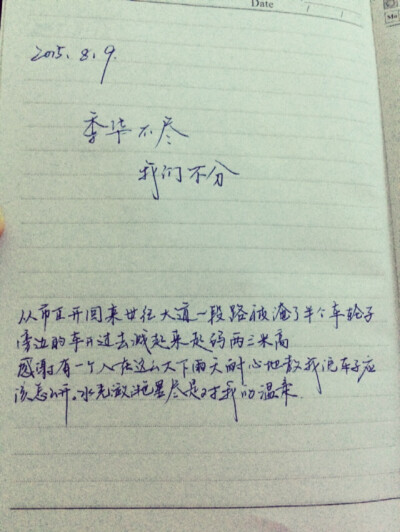 Date
Mo
2015.8.9.
香华不尽
我们不分
从市区开回来世纪大道一段路被淹了半个车轮子
旁边的车开过去溅起来起码两三米高
感谢有一个人在这么大下雨天耐心地教我说车子应
该怎么开。水光潋滟里尽是对我的温柔